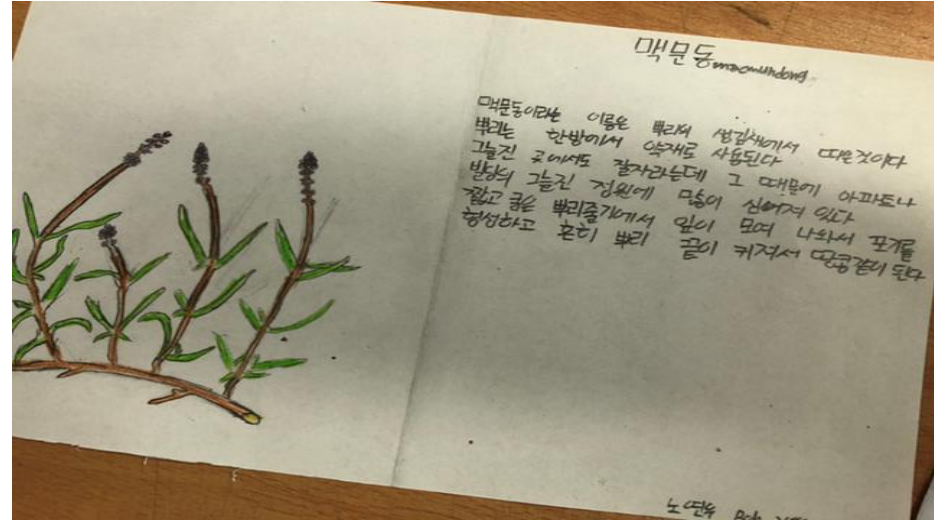 맥문동 macmundong
맥문동이라는 이름은 뿌리의 생김새에서 따온것이다
뿌리는 한방에서 약재로 사용된다
그늘진 곳에서도 잘자라는데 그 때문에 아파트나
빌딩의 그늘진 정원에 많이 심어져 있다
짧고 굵은 뿌리줄기에서 잎이 모여 나와서 포기를
형성하고 흔히 뿌리 끝이 커져서 땅콩같이 된다